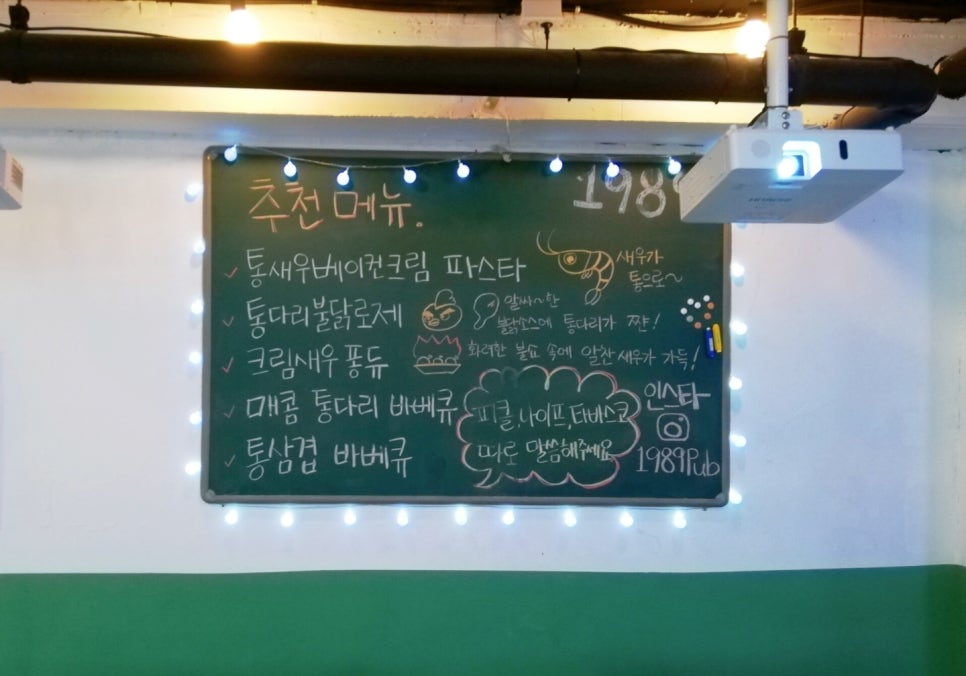 추천 메뉴.
198
통새우베이컨크림 파스타
새우가
통으로~
통다리불닭로제
알싸~한
불닭소스에 통다리가 쨘!
크림새우 퐁듀
화려한 불쇼 속에 알찬 새우가 가득!
매콤 통다리 바베큐
통삼겹 바베큐
피클,나이프,타바스코
따로 말씀해주세요
인스타
1989Pub